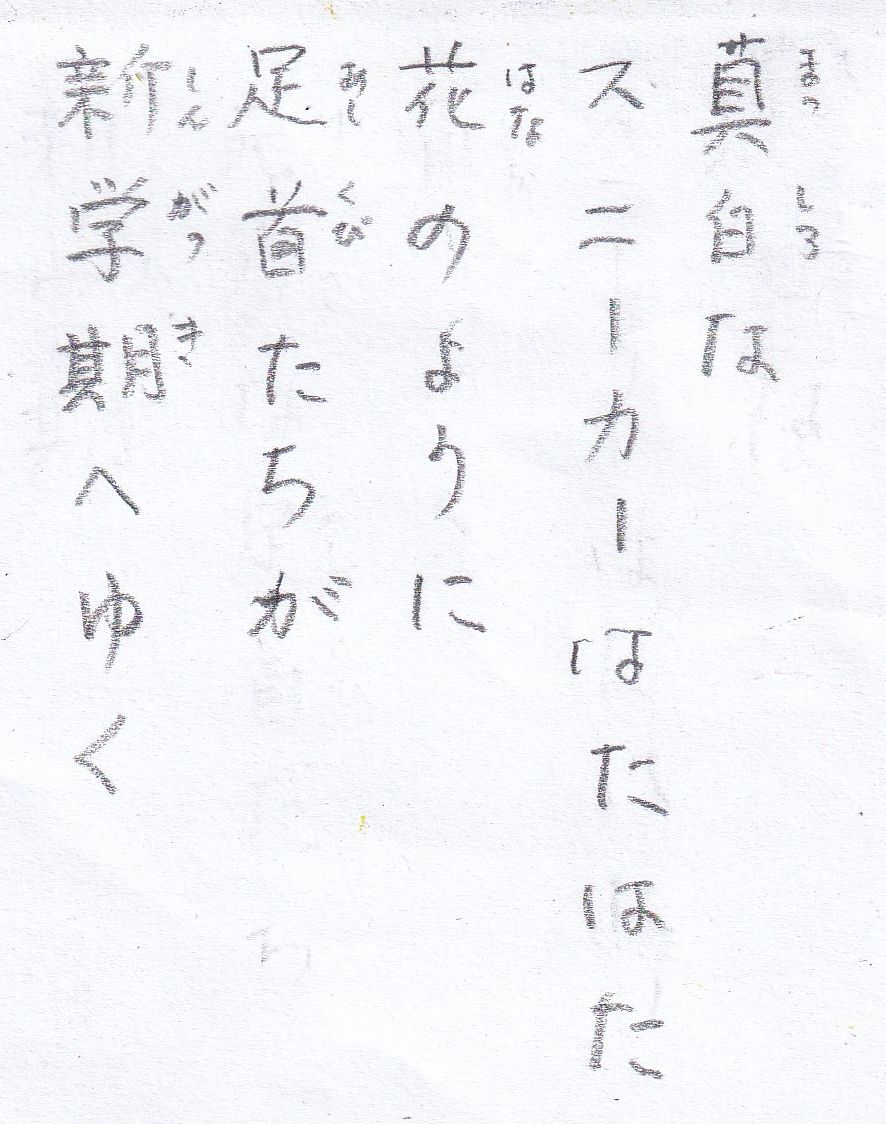 真白な
まっしろ
スニーカーはたはた
花のように
はな
足首たちが
あしくび
新学期へゆく
しんがっき